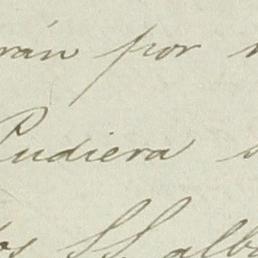 rán por
Pudiera
los SS. alb